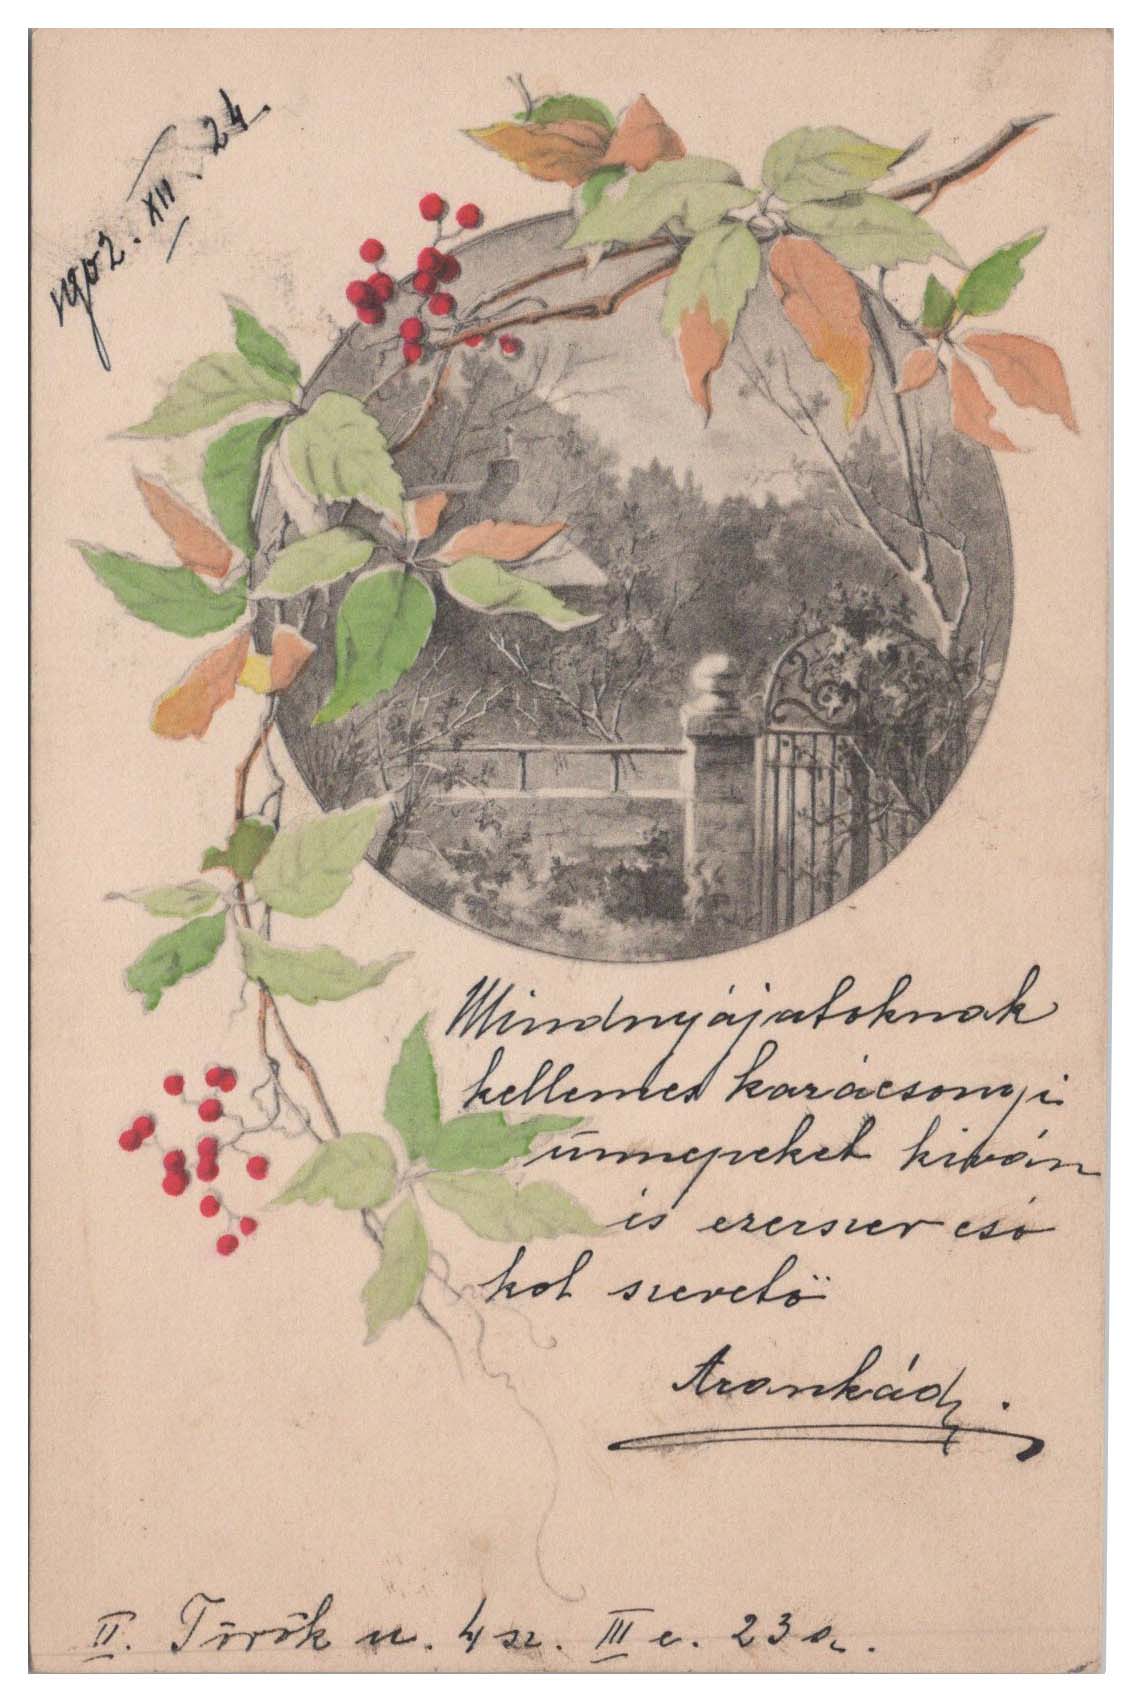 1902. XII 24.
Mindnyájatoknak
kellemes karácsonyi
ünnepeket kiván
és ezerszer csó
kol szerető
Arankád.
II. Török u. 4 sz. III e. 23 a.